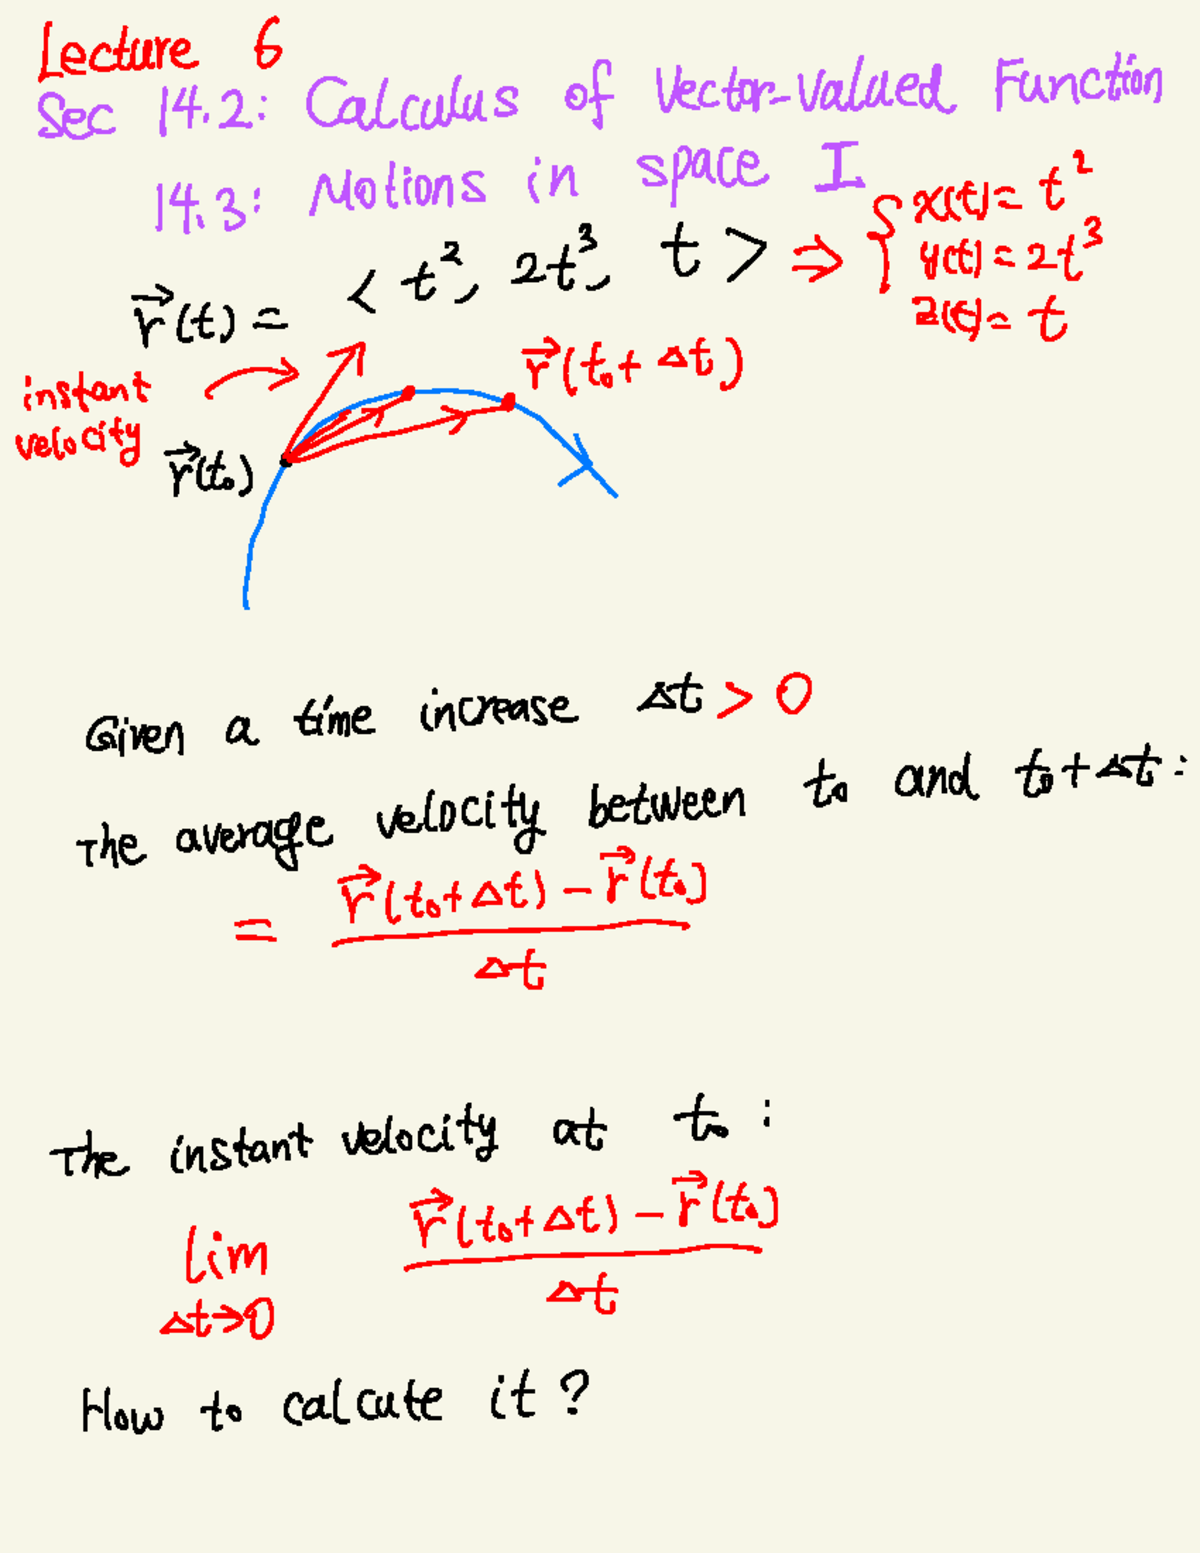 Lecture 6
Sec 14.2: Calculus of Vector-Valued Function
14.3: Motions in space I
r⃗(t) = < t², 2t³, t > ⇒ { x(t) = t²
y(t) = 2t³
z(t) = t
instant velocity
r⃗(t₀+Δt)
r⃗(t₀)
Given a time increase Δt > 0
The average velocity between t₀ and t₀+Δt:
= r⃗(t₀+Δt) - r⃗(t₀)
Δt
The instant velocity at t₀:
lim r⃗(t₀+Δt) - r⃗(t₀)
Δt→0 Δt
How to calcute it?